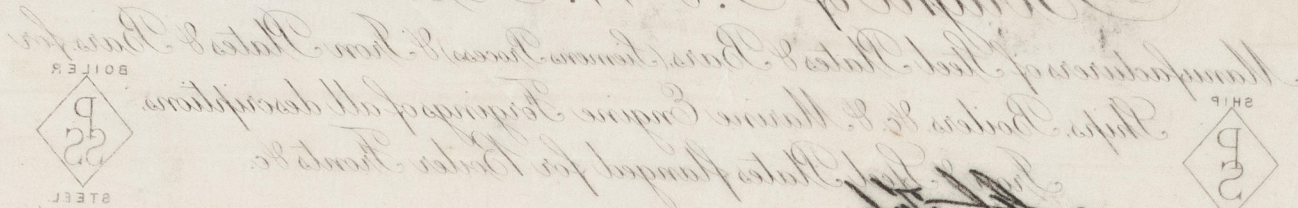 Manufacturers of Steel Plates & Bars (Siemens Process) & Iron Plates & Bars for
Ships, Boilers &c. & Marine Engine Forgings of all descriptions.
Iron & Steel Plates flanged for Boiler Fronts &c.
SHIP
P
S
BOILER
P
SS
STEEL